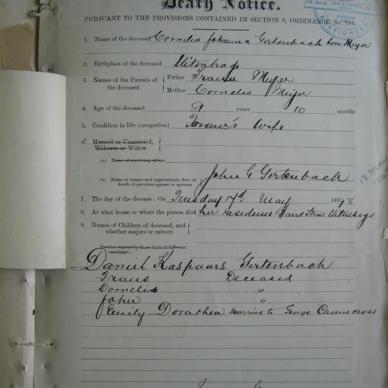 Death Notice.
PURSUANT TO THE PROVISIONS CONTAINED IN SECTION 9, ORDINANCE No. 104.
1. Name of the deceased Cornelia Johanna Gertenbach born Meyer
2. Birthplace of the deceased Uitenhage
3. Names of the Parents of the deceased
Father Frans Meyer
Mother Cornelia
4. Age of the deceased years 10 months
5. Condition in life (occupation) Farmer's Wife
6. Married or Unmarried,
Widower or Widow
(a) Name of surviving spouse
(b) Name or names and approximate date of death of previous spouse or spouses John G Gertenbach
7. The day of the decease: On Tuesday 17th May 1898
8. At what house or where the person died her residence Uitenhage
9. Names of Children of deceased, and whether majors or minors
Daniel Kaspaars Gertenbach
Frans Deceased
Cornelia "
John "
Emily Dorathea married to George Caunncross